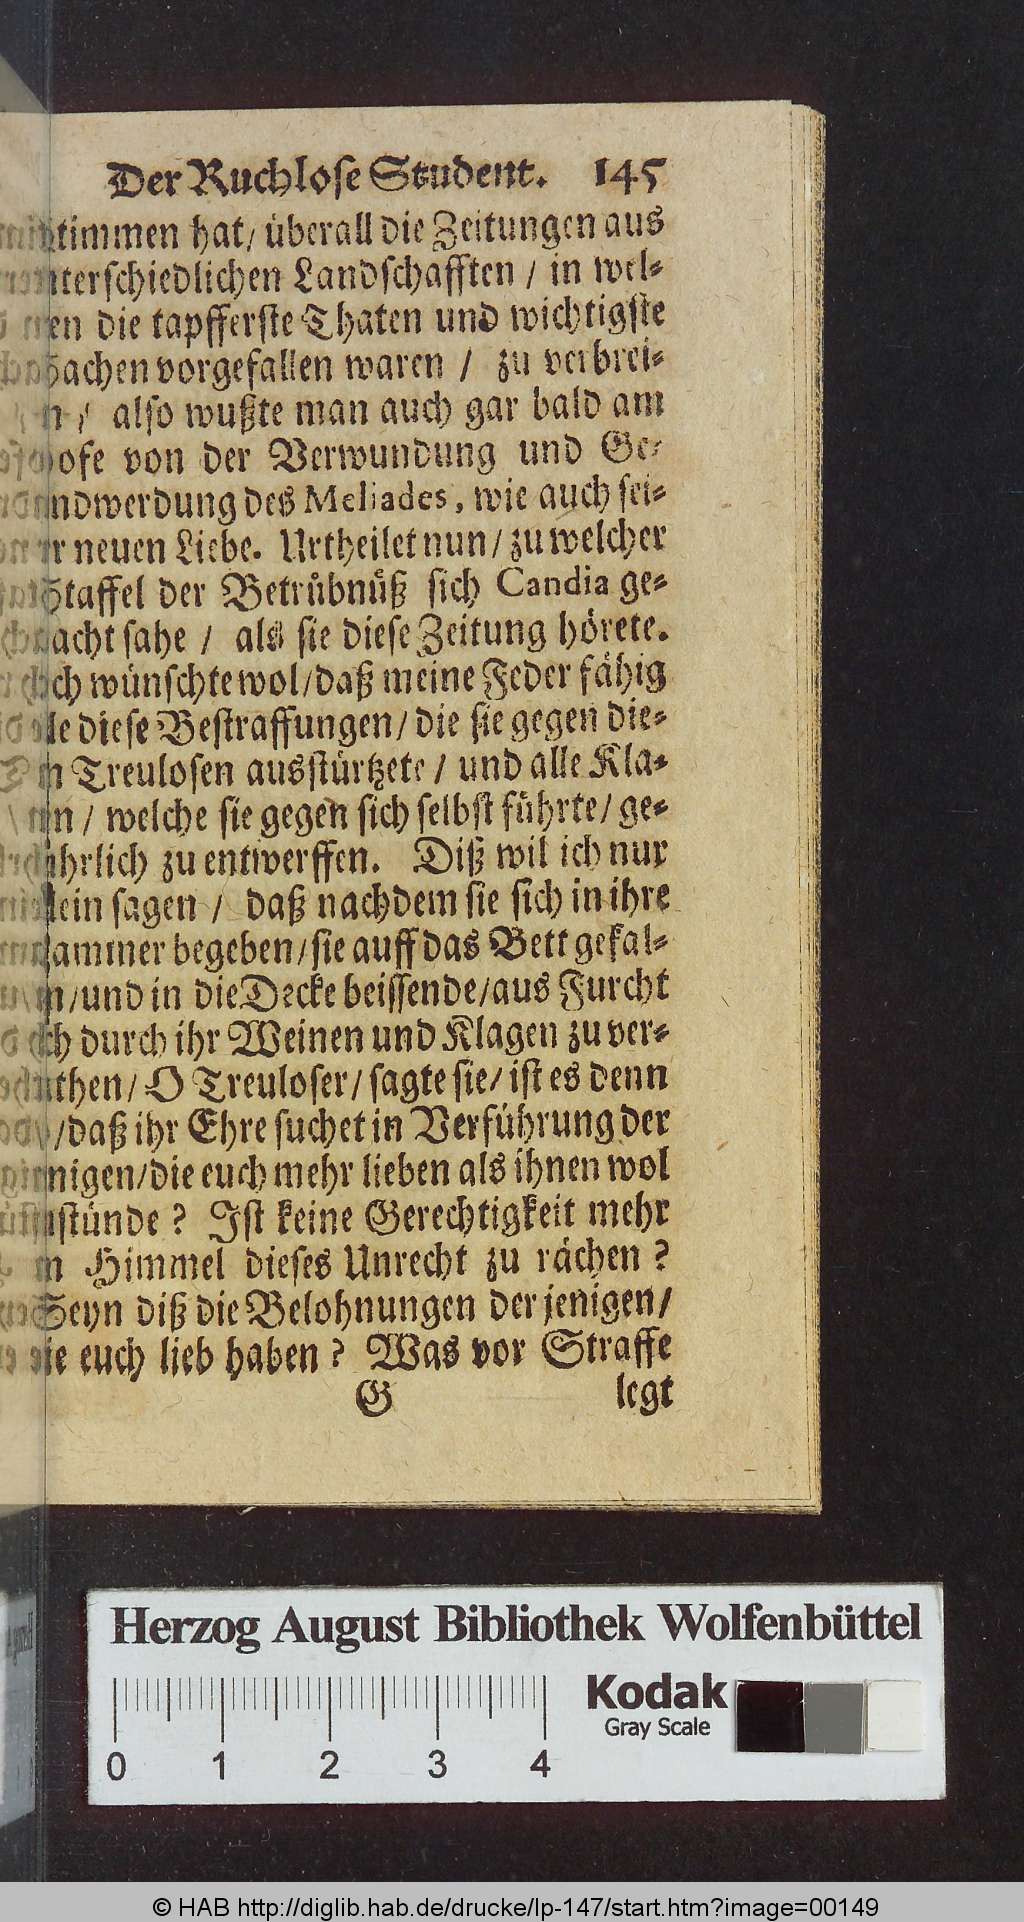 Der Ruchlose Student. 145
timmen hat/ überall die Zeitungen aus
unterschiedlichen Landschafften / in wel-
en die tapfferste Thaten und wichtigste
Sachen vorgefallen waren / zu verbrei-
n / also wußte man auch gar bald am
hofe von der Verwundung und Ge-
undwerdung des Meliades, wie auch sei-
er neuen Liebe. Urtheilet nun/ zu welcher
Staffel der Betrübnüß sich Candia ge-
bracht sahe / als sie diese Zeitung hörete.
Ich wünschte wol/ daß meine Feder fähig
alle diese Bestraffungen/ die sie gegen die-
en Treulosen ausstürtzete / und alle Kla-
en / welche sie gegen sich selbst führte/ ge-
ührlich zu entwerffen. Diß wil ich nur
allein sagen / daß nachdem sie sich in ihre
Kammer begeben/ sie auff das Bett gefal-
en/ und in die Decke beissende/ aus Furcht
sich durch ihr Weinen und Klagen zu ver-
rathen/ O Treuloser/ sagte sie/ ist es denn
/ daß ihr Ehre suchet in Verführung der
jenigen/ die euch mehr lieben als ihnen wol
anstünde ? Ist keine Gerechtigkeit mehr
im Himmel dieses Unrecht zu rächen ?
Seyn diß die Belohnungen der jenigen/
die euch lieb haben ? Was vor Straffe
G legt
Herzog August Bibliothek Wolfenbüttel
Kodak
Gray Scale
0 1 2 3 4
© HAB http://diglib.hab.de/drucke/lp-147/start.htm?image=00149